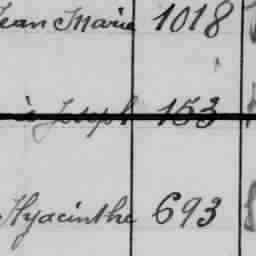 Jean Marie 1018
Joseph 153
Hyacinthe 693